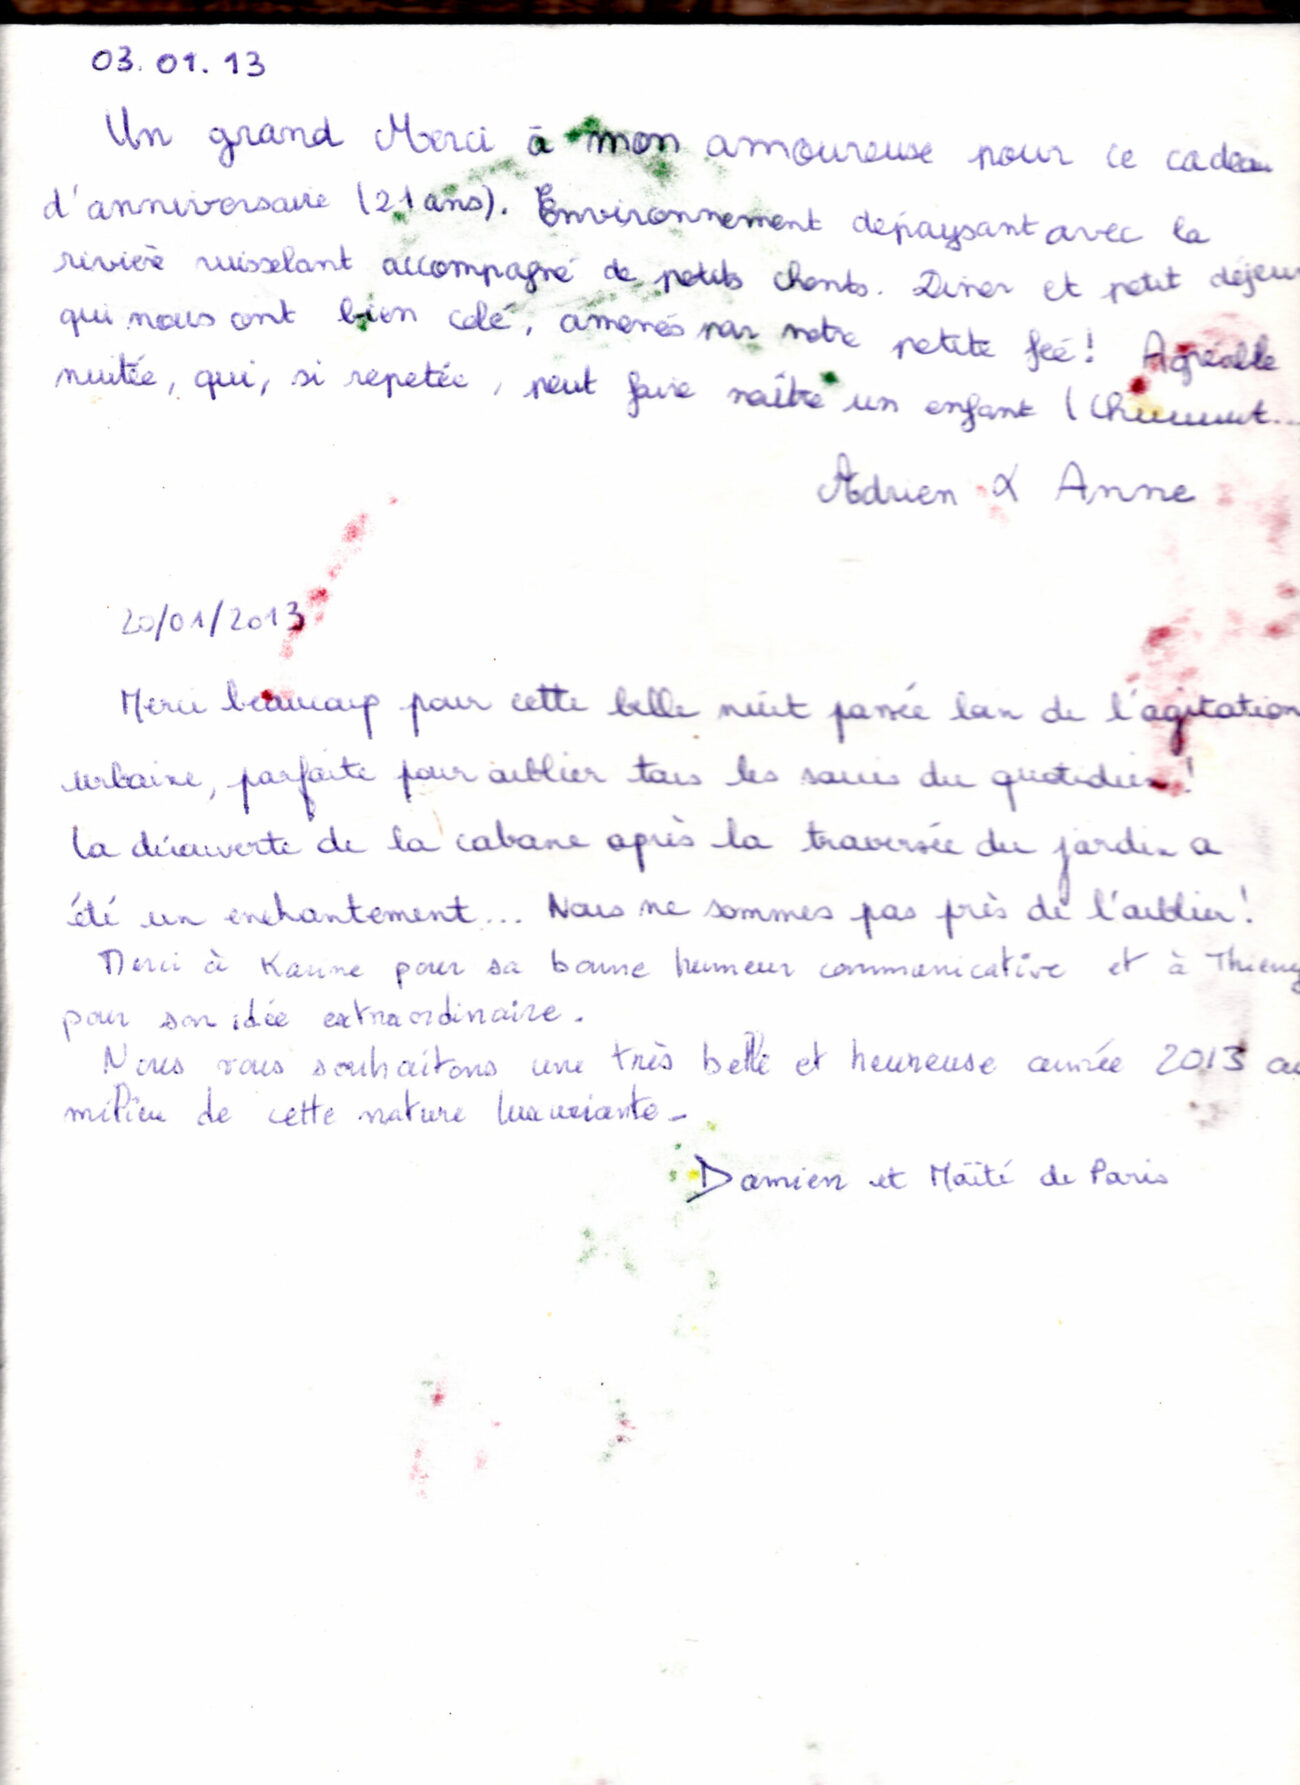 03.01.13
Un grand Merci à mon amoureuse pour ce cadeau
d'anniversaire (21 ans). Environnement depaysant avec la
rivière ruisselant accompagné de petits chants. Diner et petit déjeun
qui nous ont bien calé, amenés par notre petite feé! Agréable
nuitée, qui, si repetée, peut faire naître un enfant (Chuuuut...
Adrien & Anne
20/01/2013
Merci beaucoup pour cette belle nuit passée loin de l'agitation
urbaine, parfaite pour oublier tous les soucis du quotidien!
La découverte de la cabane après la traversée du jardin a
été un enchantement... Nous ne sommes pas près de l'oublier!
Merci à Karine pour sa bonne humeur communicative et à Thierry
pour son idée extraordinaire.
Nous vous souhaitons une très belle et heureuse année 2013 au
milieu de cette nature luxuriante.
Damien et Maïté de Paris